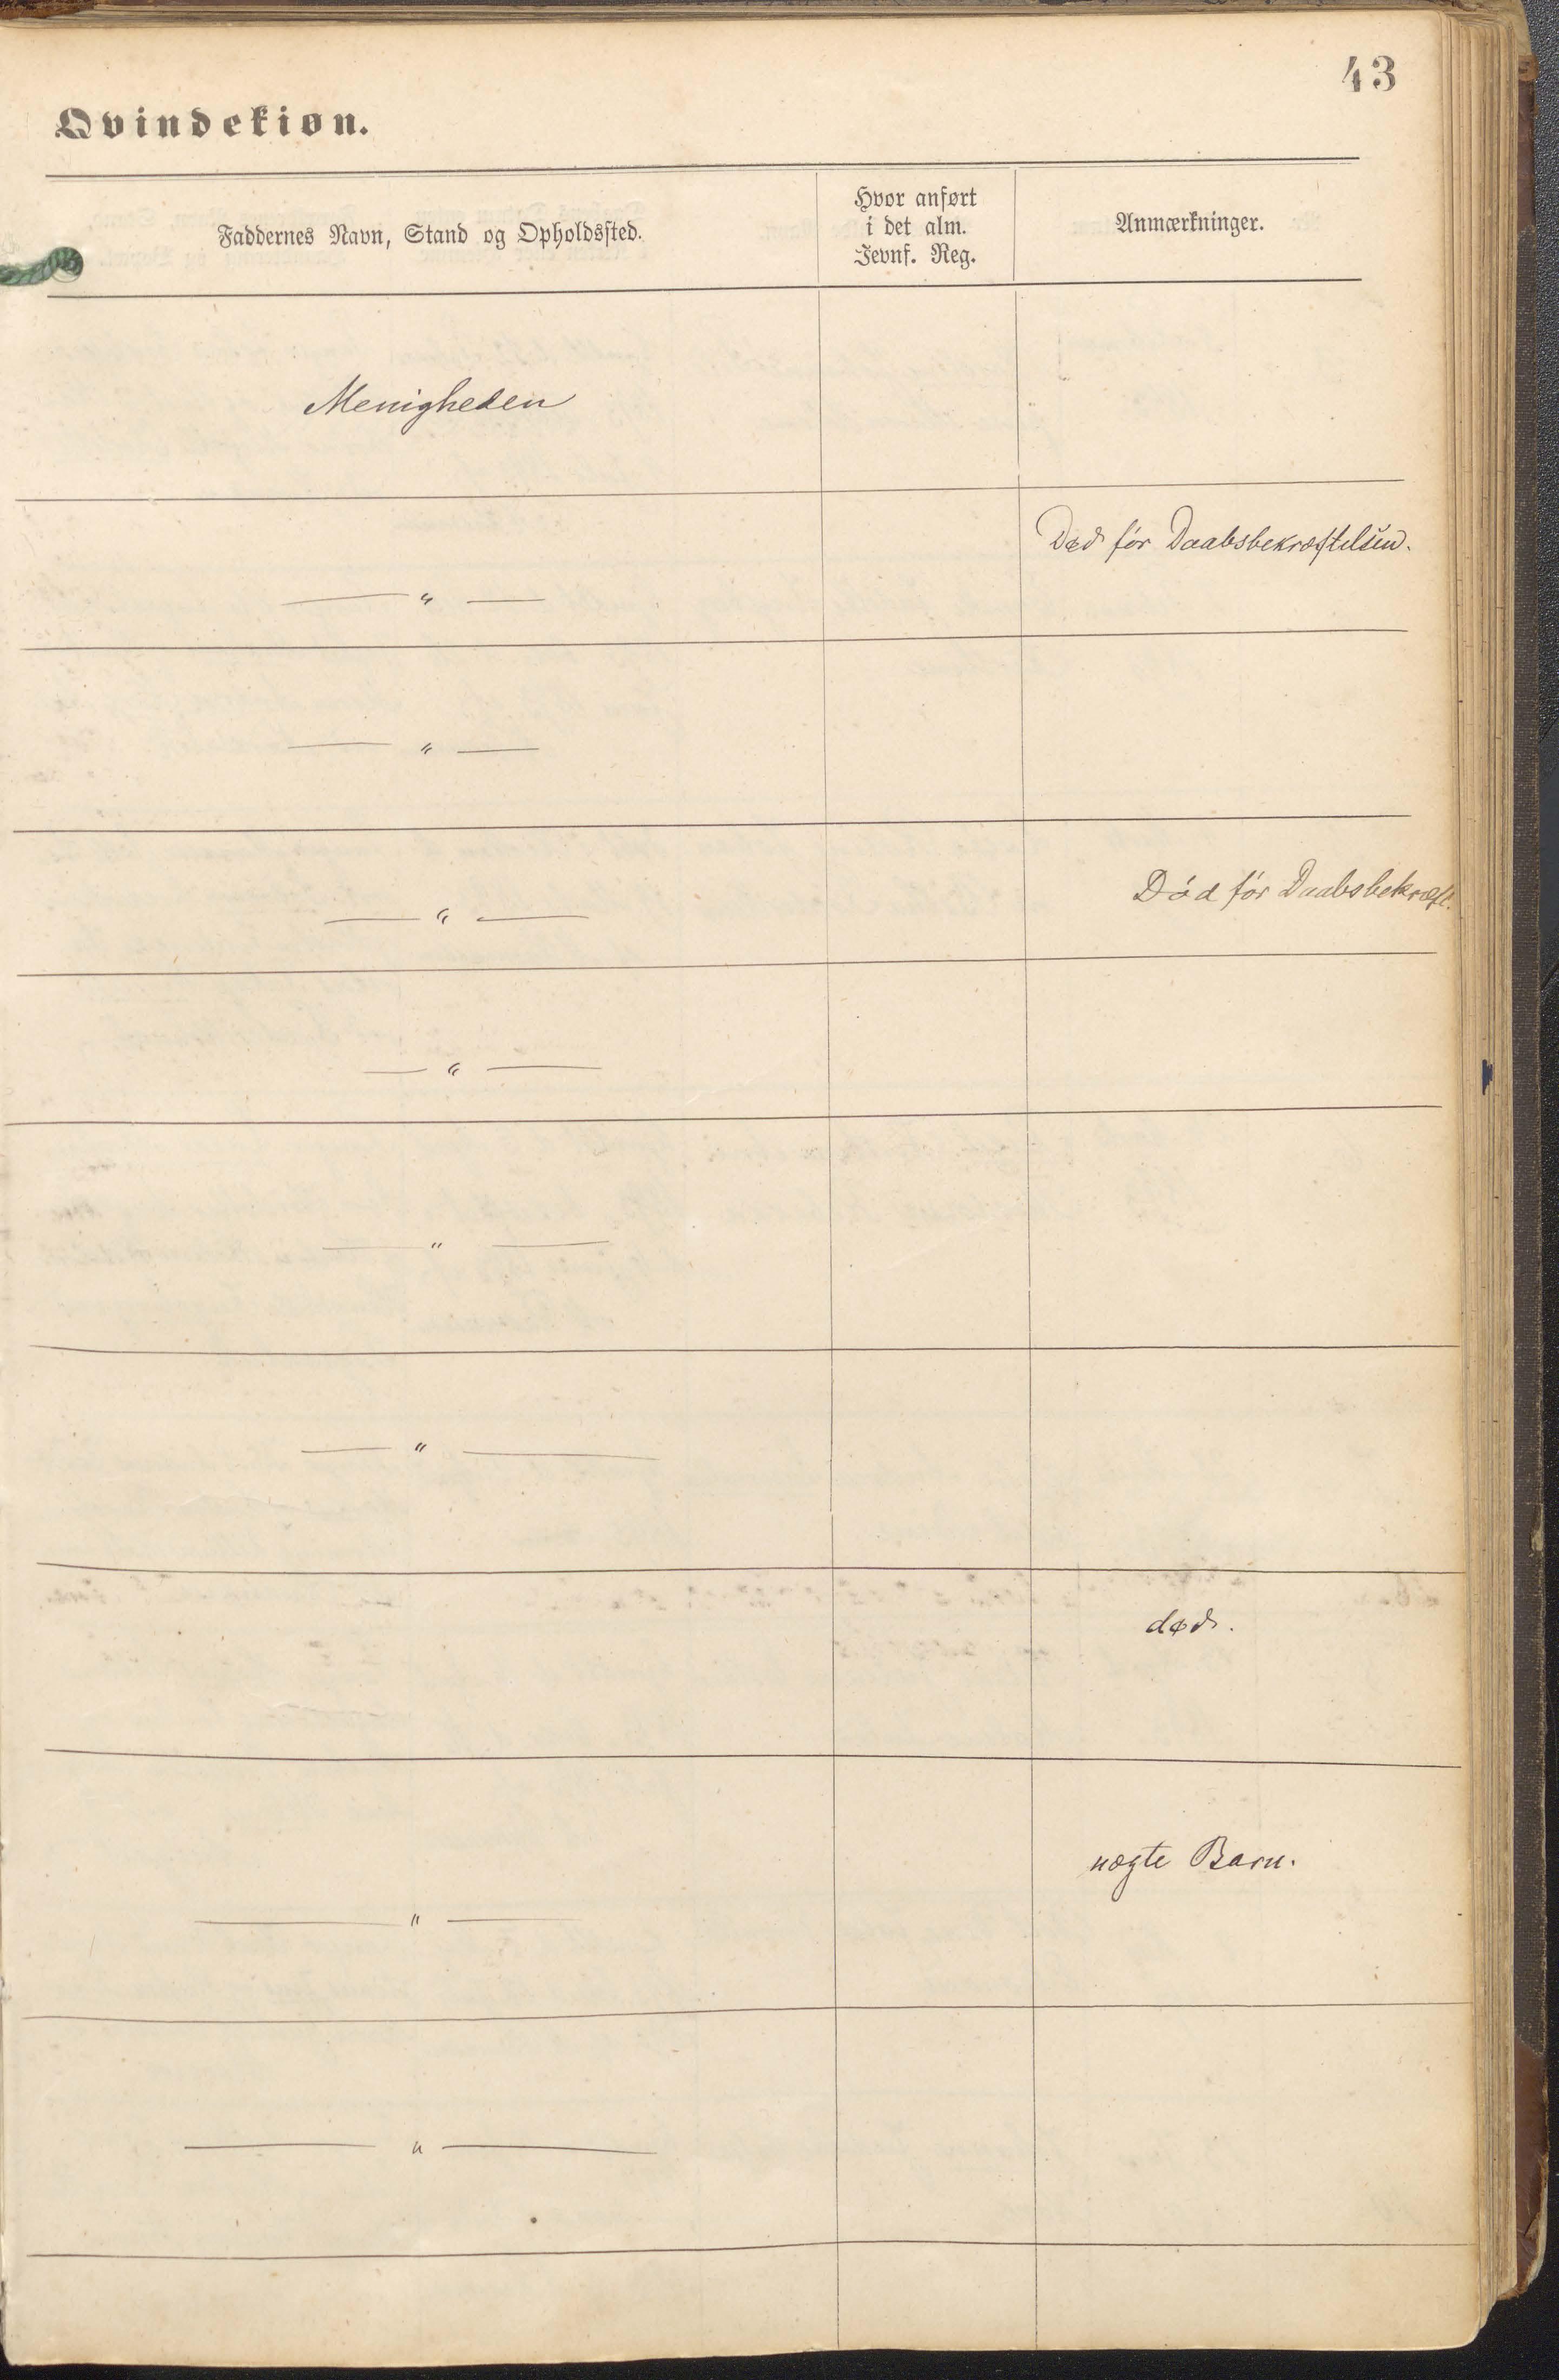 43
Qvindekiøn.
Faddernes Navn, Stand og Opholdssted.
Hvor anført
i det alm.
Jevnf. Reg.
Anmærkninger.
Menigheden
Død før Daabsbekræftelsen.
— " —
— " —
Död för Daabsbekræft.
— " —
— " —
— " —
— " —
død.
uægte Barn.
— " —
— " —